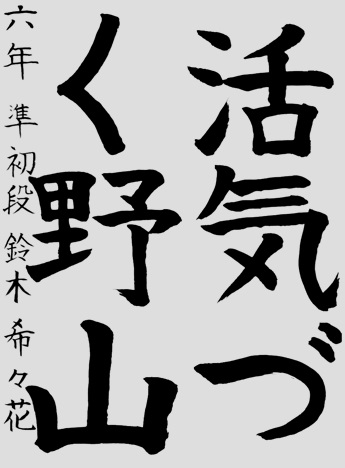 活気づ
く野山
六年 準初段 鈴木 希々花